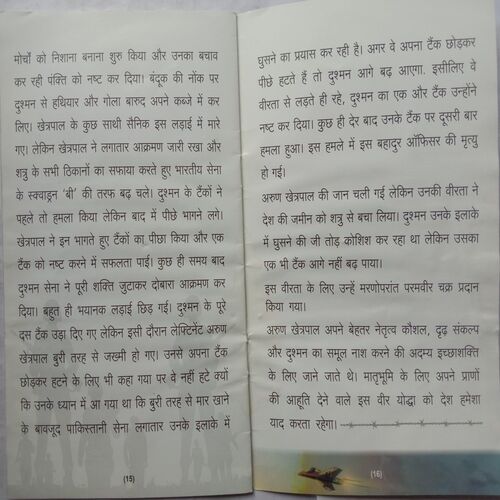 मोर्चों को निशाना बनाना शुरु किया और उनका बचाव
कर रही पंक्ति को नष्ट कर दिया। बंदूक की नोंक पर
दुश्मन से हथियार और गोला बारुद अपने कब्जे में कर
लिए। खेत्रपाल के कुछ साथी सैनिक इस लड़ाई में मारे
गए। लेकिन खेत्रपाल ने लगातार आक्रमण जारी रखा और
शत्रु के सभी ठिकानों का सफाया करते हुए भारतीय सेना
के स्क्वाड्रन 'बी' की तरफ बढ़ चले। दुश्मन के टैंकों ने
पहले तो हमला किया लेकिन बाद में पीछे भागने लगे।
खेत्रपाल ने इन भागते हुए टैंकों का पीछा किया और एक
टैंक को नष्ट करने में सफलता पाई। कुछ ही समय बाद
दुश्मन सेना ने पूरी शक्ति जुटाकर दोबारा आक्रमण कर
दिया। बहुत ही भयानक लड़ाई छिड़ गई। दुश्मन के पूरे
दस टैंक उड़ा दिए गए लेकिन इसी दौरान लेफ्टिनेंट अरुण
खेत्रपाल बुरी तरह से जख्मी हो गए। उनसे अपना टैंक
छोड़कर हटने के लिए भी कहा गया पर वे नहीं हटे क्यों
कि उनके ध्यान में आ गया था कि बुरी तरह से मार खाने
के बावजूद पाकिस्तानी सेना लगातार उनके इलाके में
(15)
घुसने का प्रयास कर रही है। अगर वे अपना टैंक छोड़कर
पीछे हटते हैं तो दुश्मन आगे बढ़ आएगा. इसीलिए वे
वीरता से लड़ते ही रहे, दुश्मन का एक और टैंक उन्होंने
नष्ट कर दिया। कुछ ही देर बाद उनके टैंक पर दूसरी बार
हमला हुआ। इस हमले में इस बहादुर ऑफिसर की मृत्यु
हो गई।
अरुण खेत्रपाल की जान चली गई लेकिन उनकी वीरता ने
देश की जमीन को शत्रु से बचा लिया। दुश्मन उनके इलाके
में घुसने की जी तोड़ कोशिश कर रहा था लेकिन उसका
एक भी टैंक आगे नहीं बढ़ पाया।
इस वीरता के लिए उन्हें मरणोपरांत परमवीर चक्र प्रदान
किया गया।
अरुण खेत्रपाल अपने बेहतर नेतृत्व कौशल, दृढ़ संकल्प
और दुश्मन का समूल नाश करने की अदम्य इच्छाशक्ति
के लिए जाने जाते थे। मातृभूमि के लिए अपने प्राणों
की आहूति देने वाले इस वीर योद्धा को देश हमेशा
याद करता रहेगा।
(16)